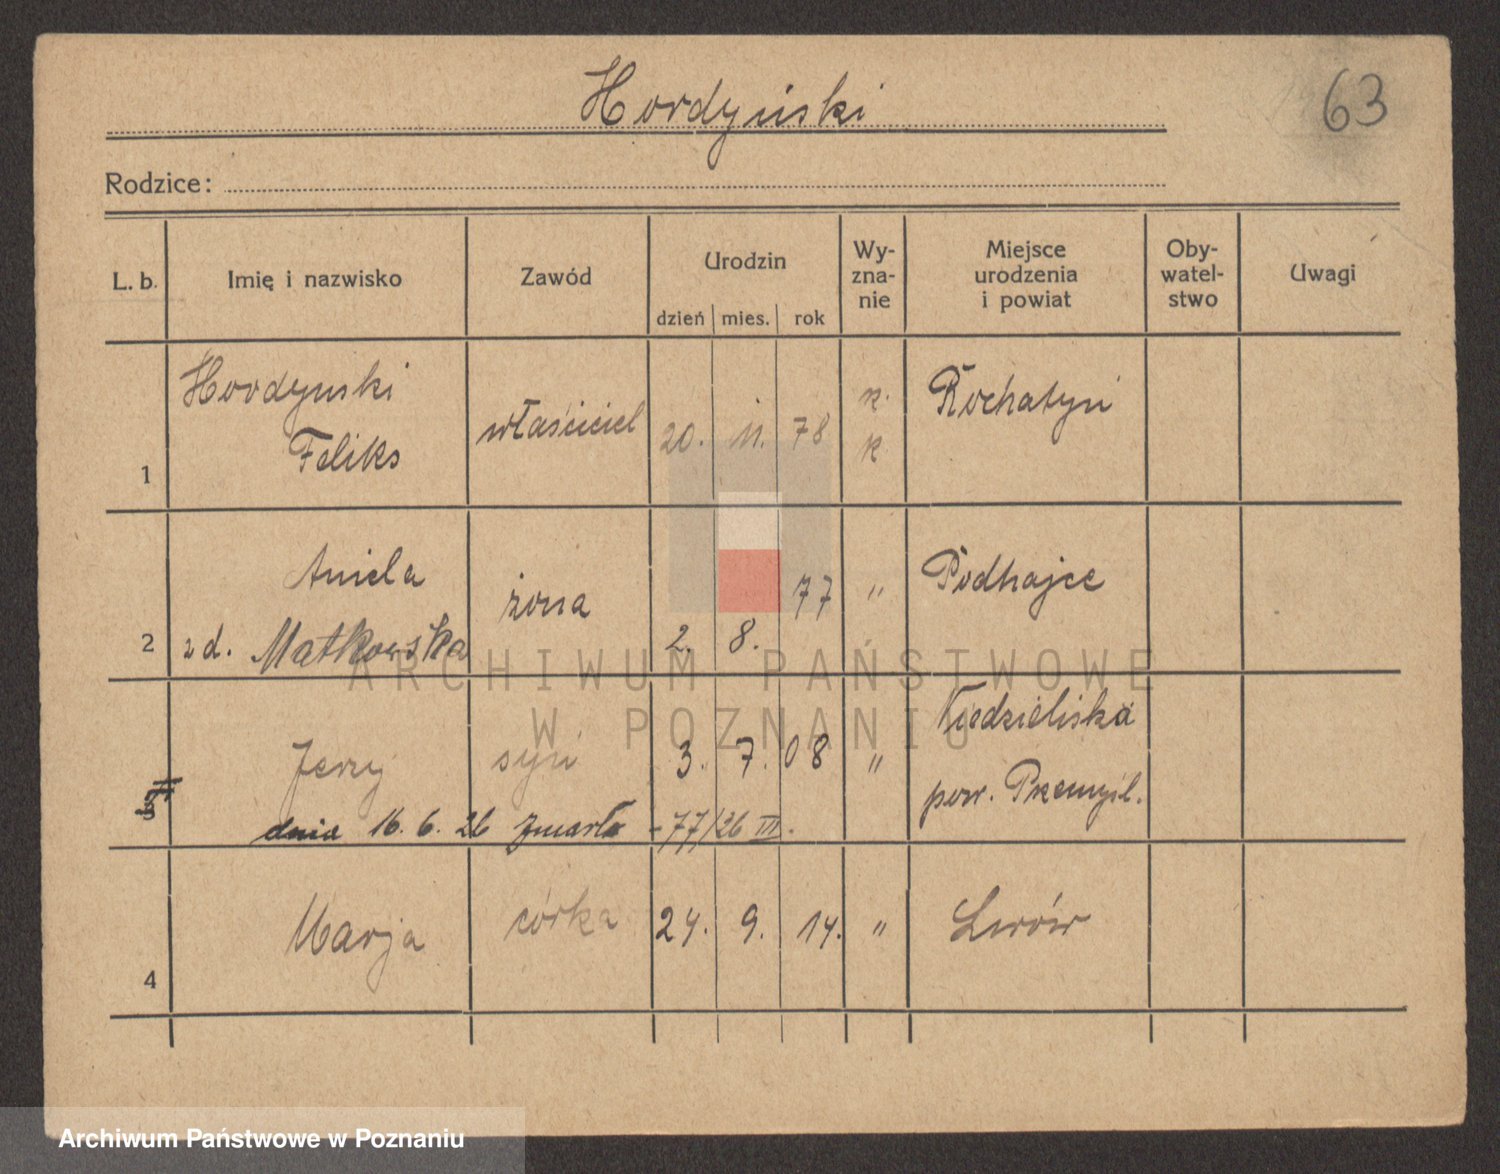 Hordyński
63
Rodzice:
L. b. Imię i nazwisko Zawód Urodzin dzień mies. rok Wy-zna-nie Miejsce urodzenia i powiat Oby-watel-stwo Uwagi
Hordyński Feliks
1 właściciel 20. 11. 78 r. k Rohatyn
Aniela
2 zd. Matkowska żona 2. 8. 77 " Podhajce
3 Jerzy syn 3. 7. 08 " Niedzieliska
pow. Przemyśl.
dnia 16. 6. 26 zmarł - 77/26 III.
4 Marja córka 24. 9. 14. " Lwów
ARCHIWUM PAŃSTWOWE
W POZNANIU
Archiwum Państwowe w Poznaniu